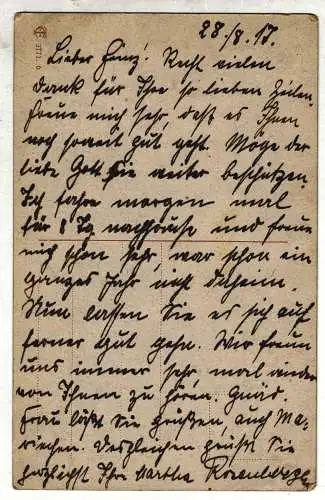 28./8.17.
Lieber Heinz! Recht vielen
Dank für Ihre so lieben Zeilen.
Freue mich sehr daß es Ihnen
noch soweit gut geht. Möge der
liebe Gott Sie weiter beschützen.
Ich fahre morgen mal
für 8 Tg nachhause und freue
mich schon sehr, war schon ein
ganzes Jahr nicht daheim.
Nun lassen Sie es sich auch
ferner gut gehn. Wir freun
uns immer sehr mal wieder
von Ihnen zu hören. Gnäd.
Frau läßt Sie grüßen, auch Ma-
riechen. Desgleichen grüßt Sie
herzlichst Ihre Martha